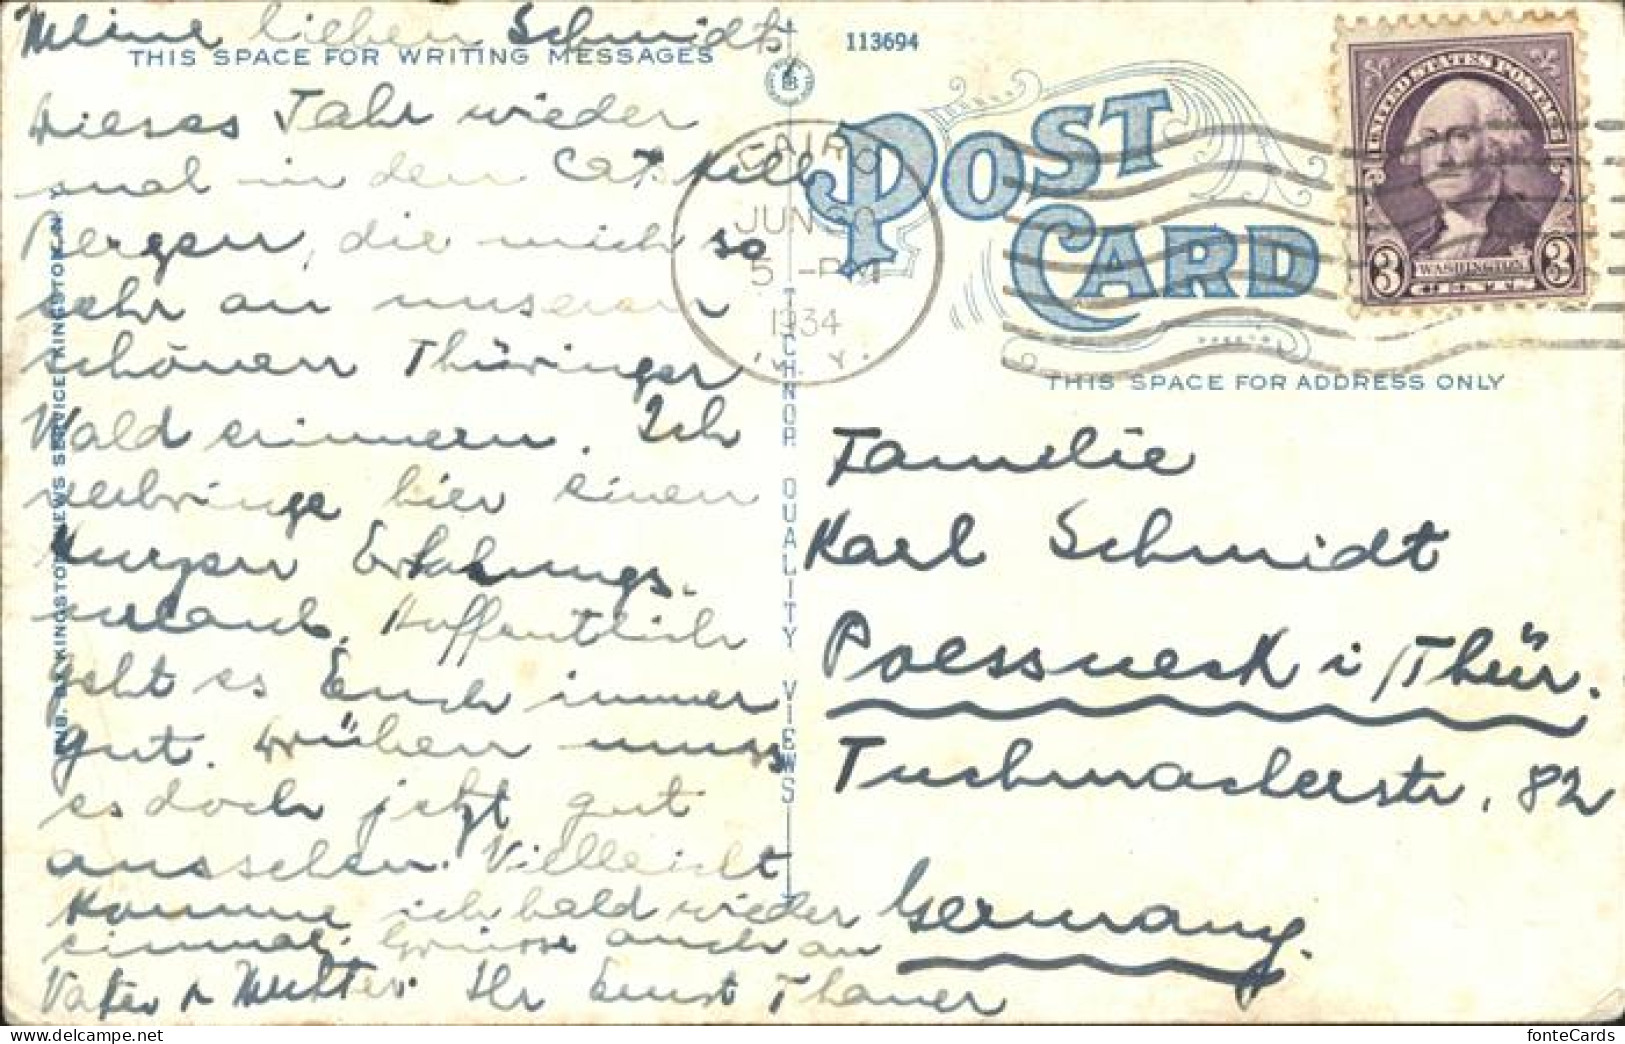 Meine lieben Schmidts,
THIS SPACE FOR WRITING MESSAGES
Dieses Jahr wieder
mal in den Catskill
Bergen, die mich so
sehr an unseren
schönen Thüringer
Wald erinnern. Ich
verbringe hier einen
kurzen Erholungs-
urlaub. Hoffentlich
geht es Euch immer
gut. Drüben muss
es doch jetzt gut
aussehen. Vielleicht
komme ich bald wieder
einmal. Grüsse auch an
Vater u Mutter. Ihr Ernst Thauer
PUB. BY KINGSTON NEWS SERVICE, KINGSTON, N. Y.
TECHNOR QUALITY VIEWS
113694
POST
CARD
CAIRO
JUN
5 -PM
1934
N. Y.
UNITED STATES POSTAGE
WASHINGTON
3 3
THIS SPACE FOR ADDRESS ONLY
Familie
Karl Schmidt
Poessneck i/Thür.
Tuchmacherstr. 82
Germany.
fonteCards